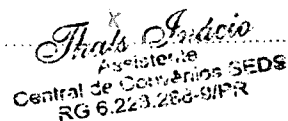 Thaís Inácio
Assistente
Central de Convênios SEDS
RG 6.223.288-9/PR